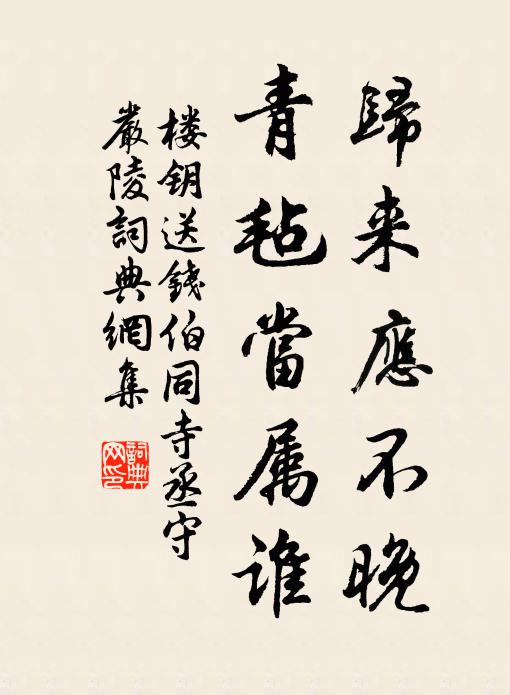 歸来應不晚
青毡當属谁
楼钥送錢伯同寺丞守
嚴陵詞典網集
詞典
网印